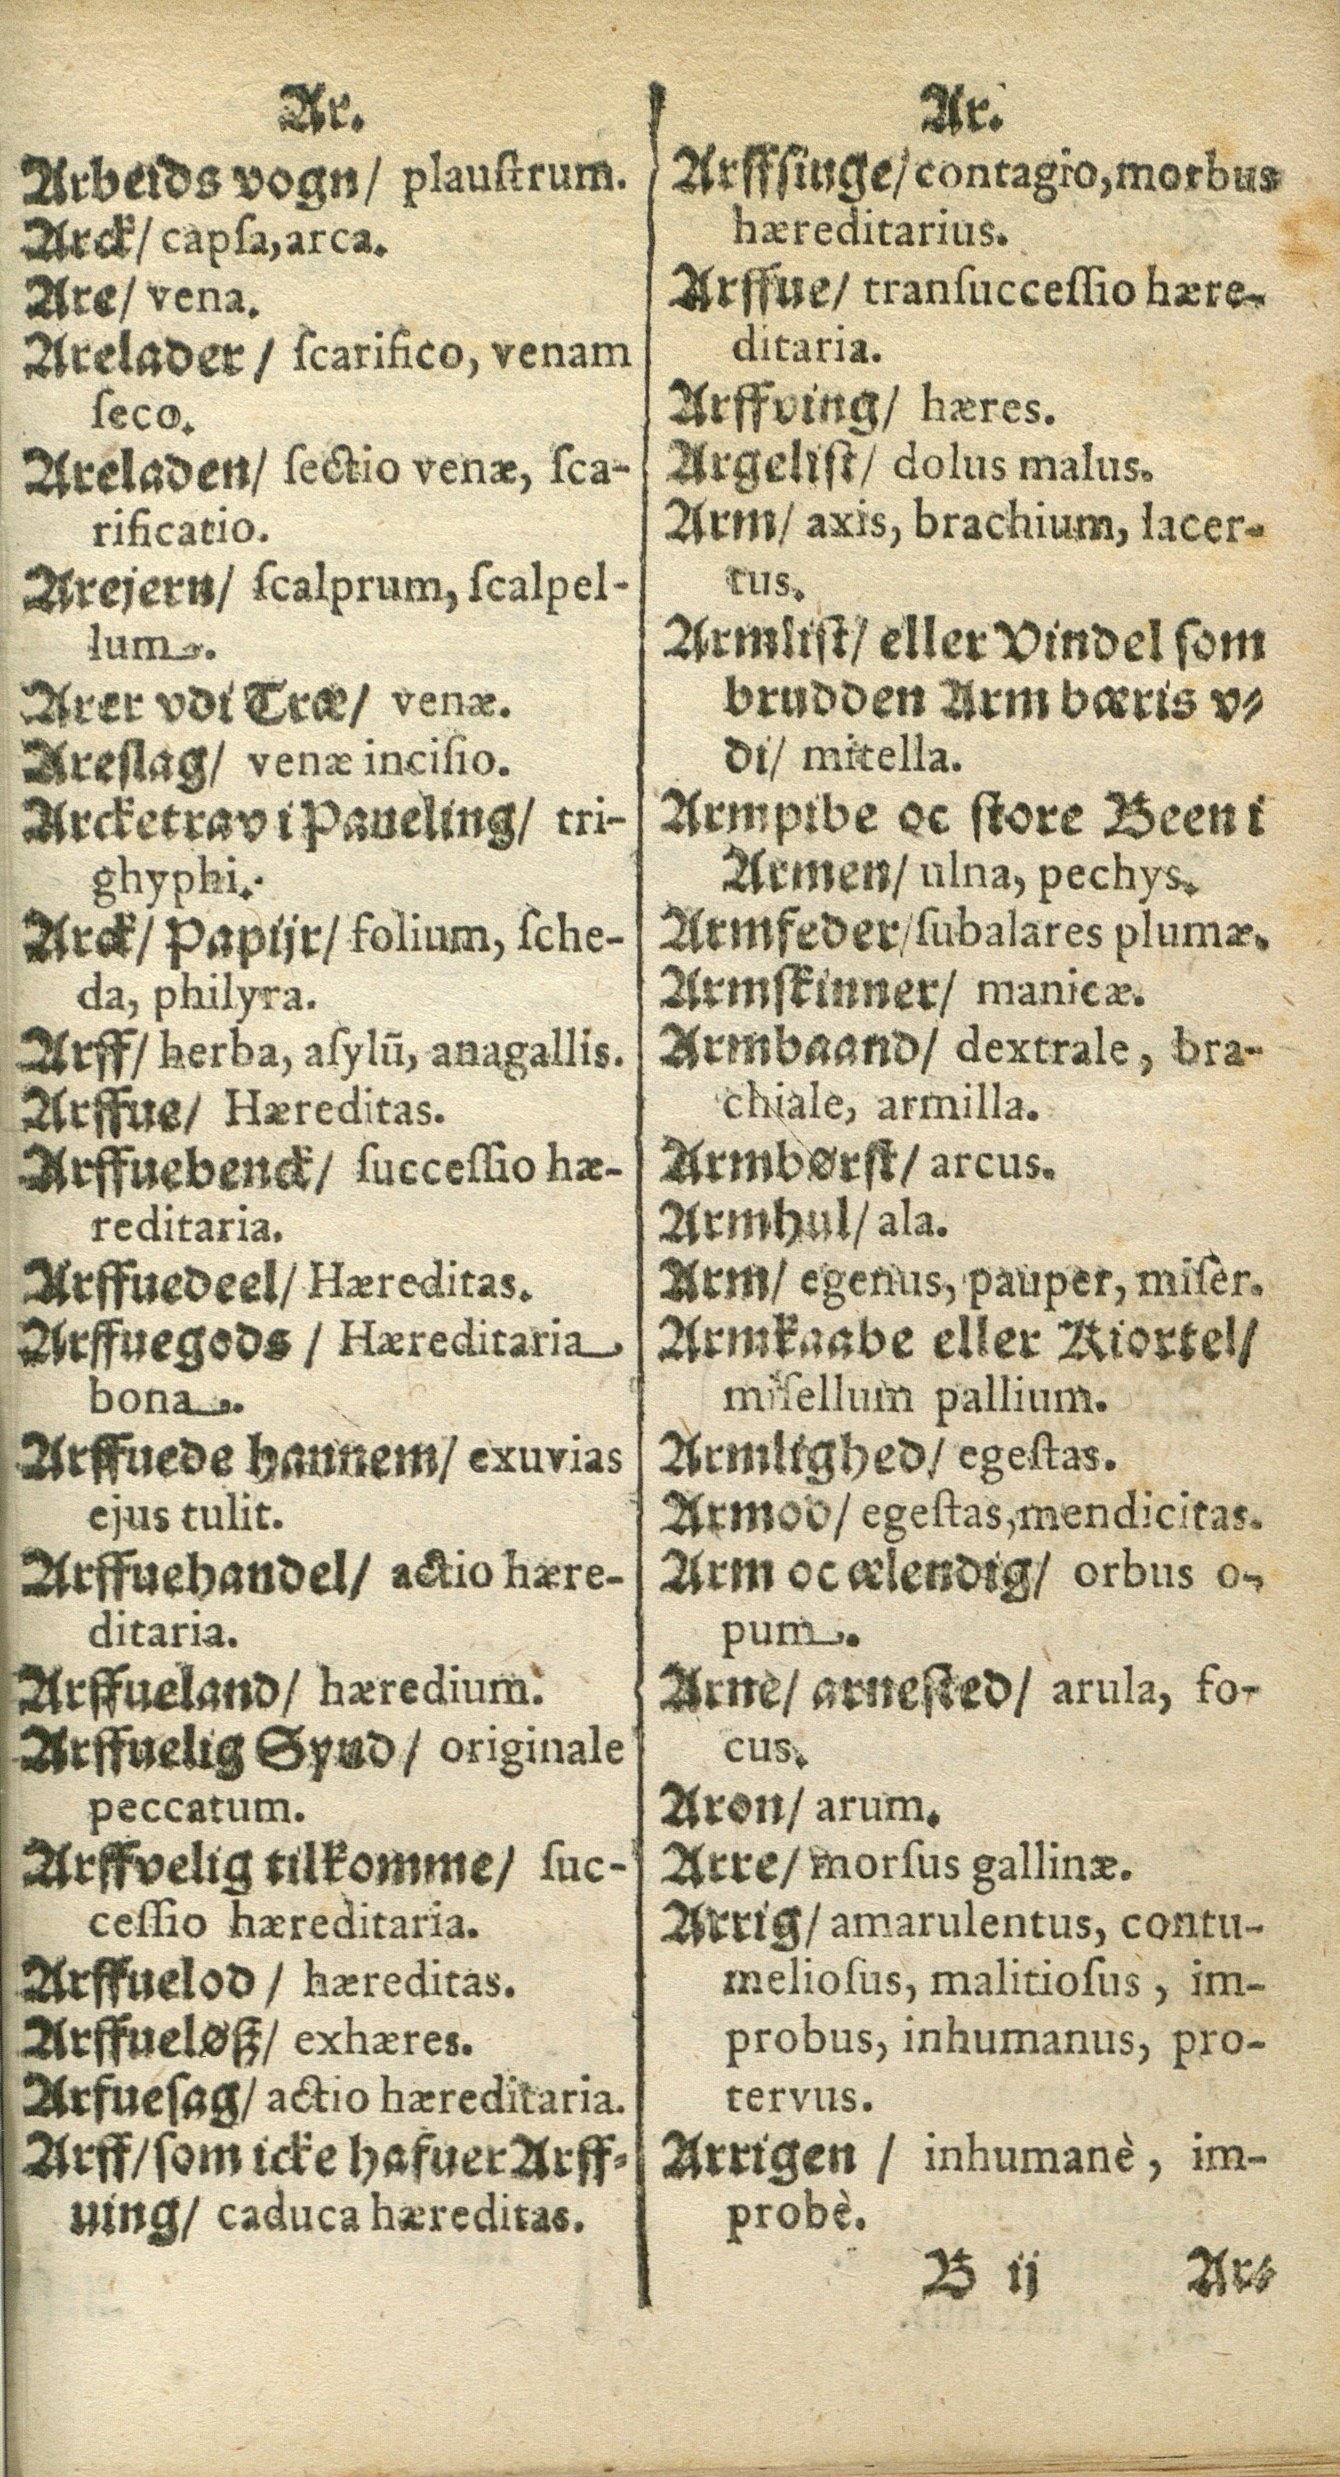 Ar.
Arbeids vogn/ plauſtrum.
Arck/ capſa, arca.
Are/ vena.
Arelader/ ſcarifico, venam
ſeco.
Areladen/ ſectio venæ, ſca-
rificatio.
Arejern/ ſcalprum, ſcalpel-
lum.
Arer vdi Træ/ venæ.
Areslag/ venæ inciſio.
Arcketrav i Paueling/ tri-
ghyphi.
Arck/ Papijr/ folium, ſche-
da, philyra.
Arff/ herba, aſylū, anagallis.
Arffue/ Hæreditas.
Arffuebenck/ ſucceſſio hæ-
reditaria.
Arffuedeel/ Hæreditas.
Arffuegods/ Hæreditaria
bona.
Arffuede hannem/ exuvias
ejus tulit.
Arffuehandel/ actio hære-
ditaria.
Arffueland/ hæredium.
Arffuelig Synd/ originale
peccatum.
Arffvelig tilkomme/ ſuc-
ceſſio hæreditaria.
Arffuelod/ hæreditas.
Arffueløß/ exhæres.
Arfueſag/ actio hæreditaria.
Arff/ ſom icke hafuer Arff-
uing/ caduca hæreditas.
Ar.
Arffſinge/ contagio, morbus
hæreditarius.
Arffue/ tranſucceſſio hære-
ditaria.
Arffving/ hæres.
Argeliſt/ dolus malus.
Arm/ axis, brachium, lacer-
tus.
Armliſt/ eller Vindel ſom
brudden Arm bæris v-
di/ mitella.
Armpibe oc ſtore Been i
Armen/ ulna, pechys.
Armfeder/ ſubalares plumæ.
Armſkinner/ manicæ.
Armbaand/ dextrale, bra-
chiale, armilla.
Armbørſt/ arcus.
Armhul/ ala.
Arm/ egenus, pauper, miſer.
Armkaabe eller Kiortel/
miſellum pallium.
Armlighed/ egeſtas.
Armod/ egeſtas, mendicitas.
Arm oc ælendig/ orbus o-
pum.
Arne/ arneſted/ arula, fo-
cus.
Aron/ arum.
Arre/ morſus gallinæ.
Arrig/ amarulentus, contu-
melioſus, malitioſus, im-
probus, inhumanus, pro-
tervus.
Arrigen/ inhumanè, im-
probè.
B ij Ar-